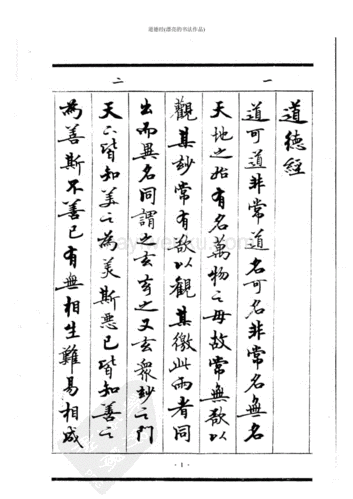 道德经(漂亮的书法作品)
一
二
道德經
道可道非常道名可名非常名無名
天地之始有名萬物之母故常無欲以
觀其妙常有欲以觀其徼此兩者同
出而異名同謂之玄玄之又玄眾妙之門
天下皆知美之為美斯惡已皆知善之
為善斯不善已有無相生難易相成
· 1 ·